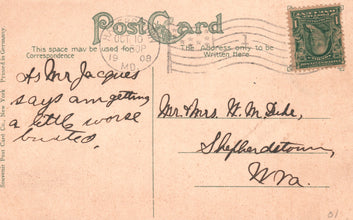 Post Card
This space may be used for
Correspondence
The Address only to be
Written Here
OCT 10
19 08
MD.
As Mr Jacques
says am getting
a little worse
busted.
Mr. & Mrs. H. M. Duke,
Shepherdstown,
W. Va.
Souvenir Post Card Co., New York Printed in Germany
01